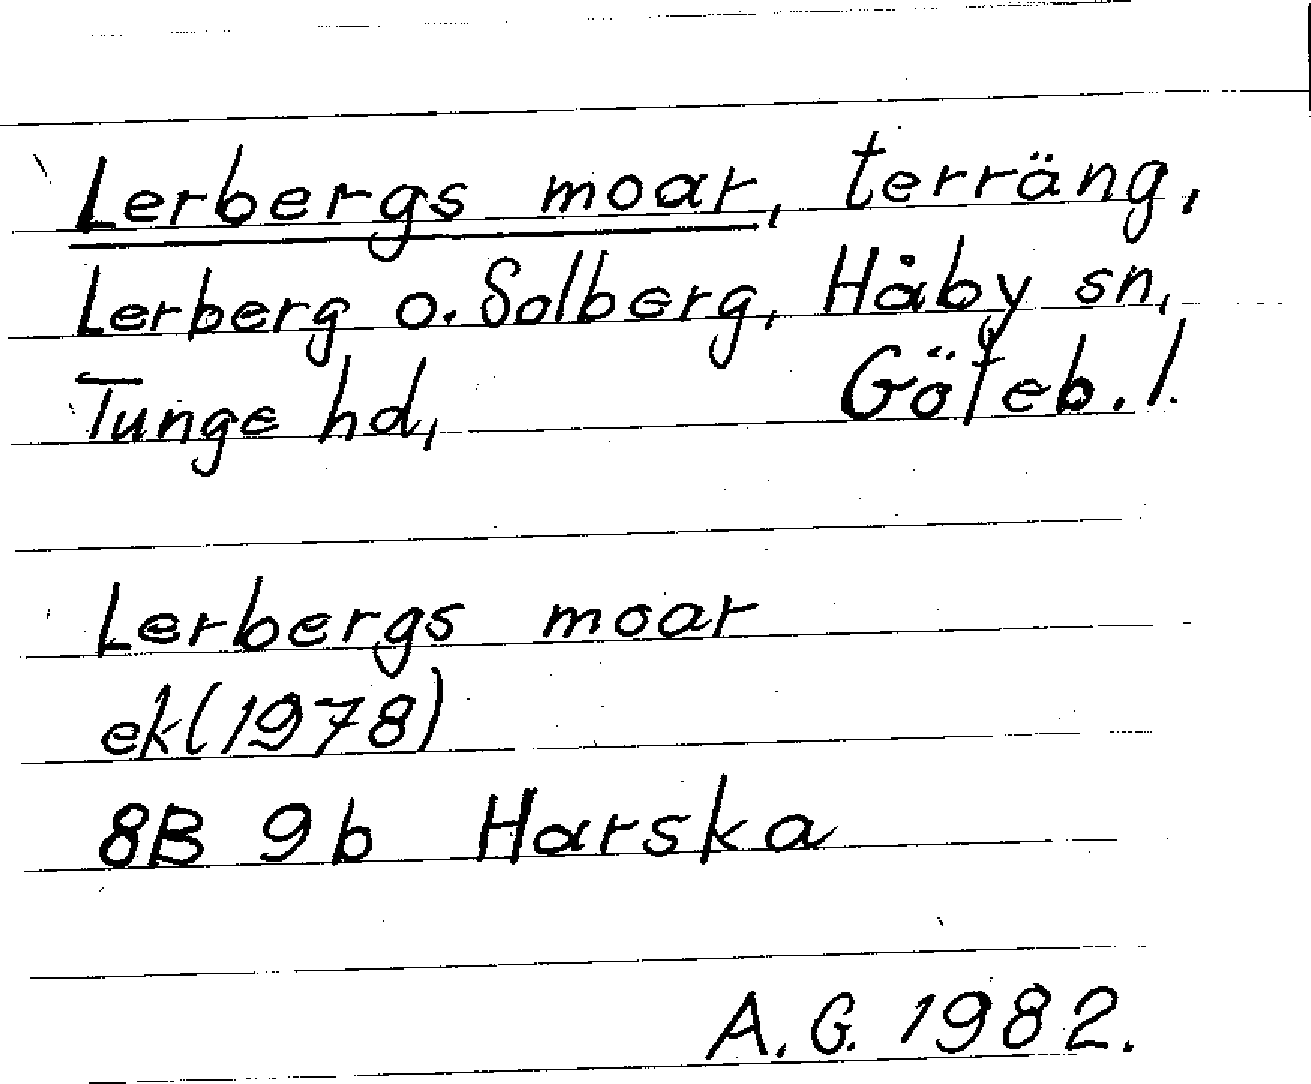 Lerbergs moar, terräng,
Lerberg o. Solberg, Håby sn,
Tunge hd, Göteb. l.
Lerbergs moar
ek (1978)
8B 9b Harska
A.G. 1982.